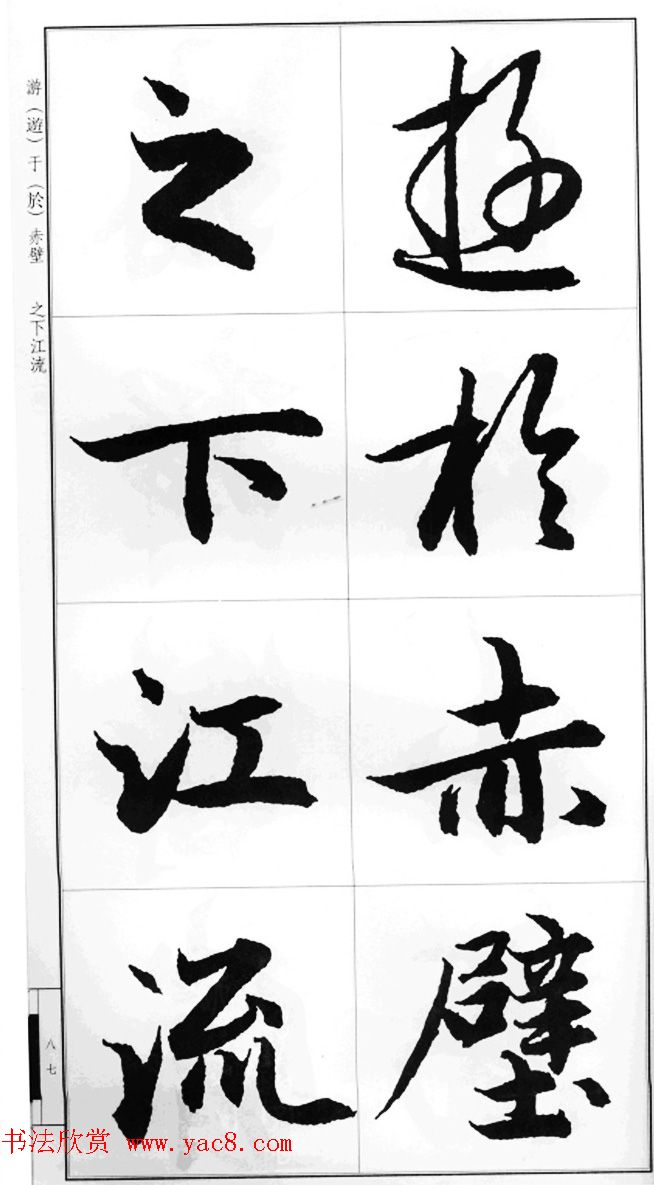 遊於赤壁
之下江流
游（遊）于（於）赤壁 之下江流
八七
书法欣赏 www.yac8.com